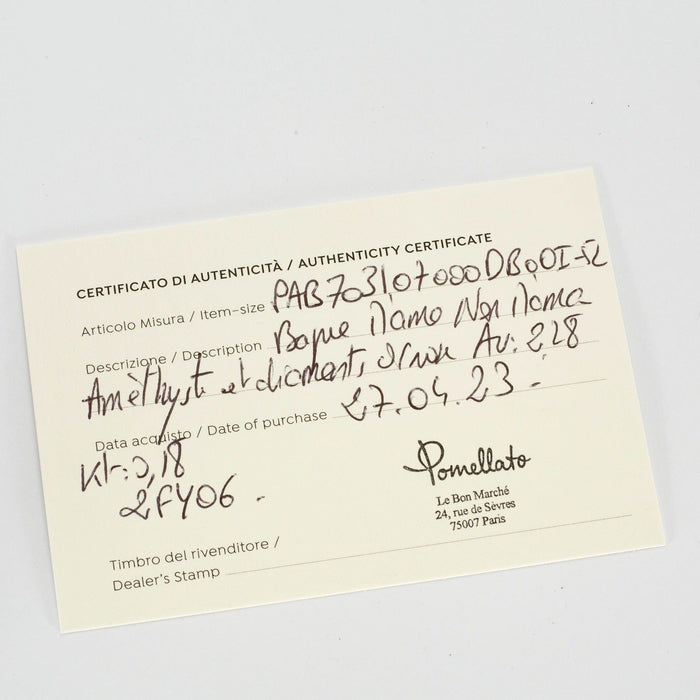 CERTIFICATO DI AUTENTICITÀ / AUTHENTICITY CERTIFICATE
Articolo Misura / Item-size PAB703107000DB00I-52
Descrizione / Description Bague
Améthyste et diamants Av: 2,28
Data acquisto / Date of purchase 27.04.23.
Kt: 0,18
2FY06.
Pomellato
Le Bon Marché
24, rue de Sèvres
75007 Paris
Timbro del rivenditore /
Dealer's Stamp